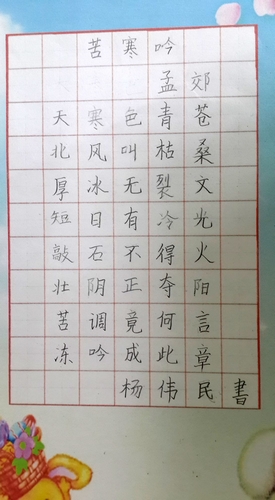 苦寒吟
孟郊
天寒色青苍
北风叫枯桑
厚冰无裂文
短日有冷光
敲石不得火
壮阴正夺阳
苦调竟何言
冻吟成此章
杨伟民書